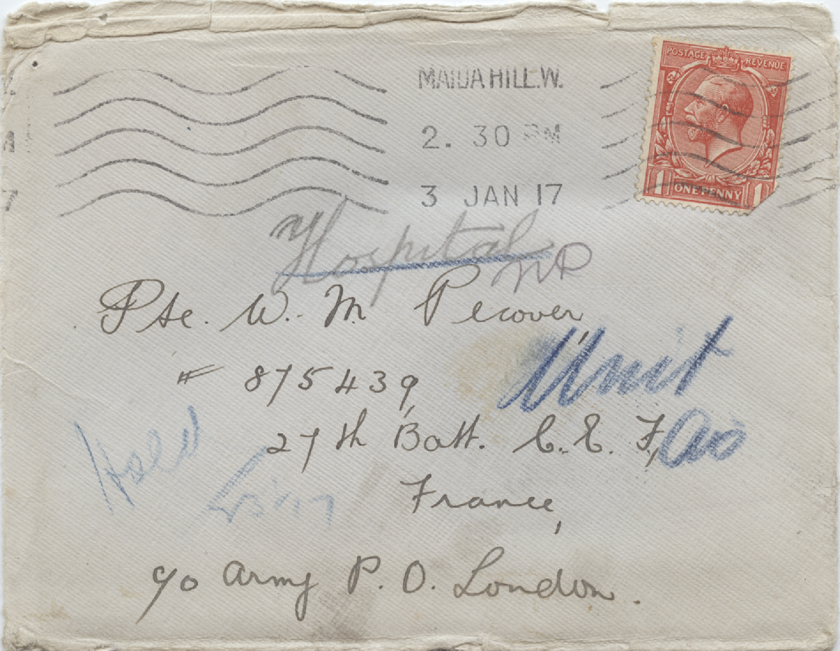 MAIDA HILL.W.
2. 30 PM
3 JAN 17
POSTAGE REVENUE
1 ONE PENNY 1
Hospital
Pte. W. M. Pecover,
# 875439
Unit
27th Batt. C. E. F,
Hold
France,
c/o Army P. O. London.